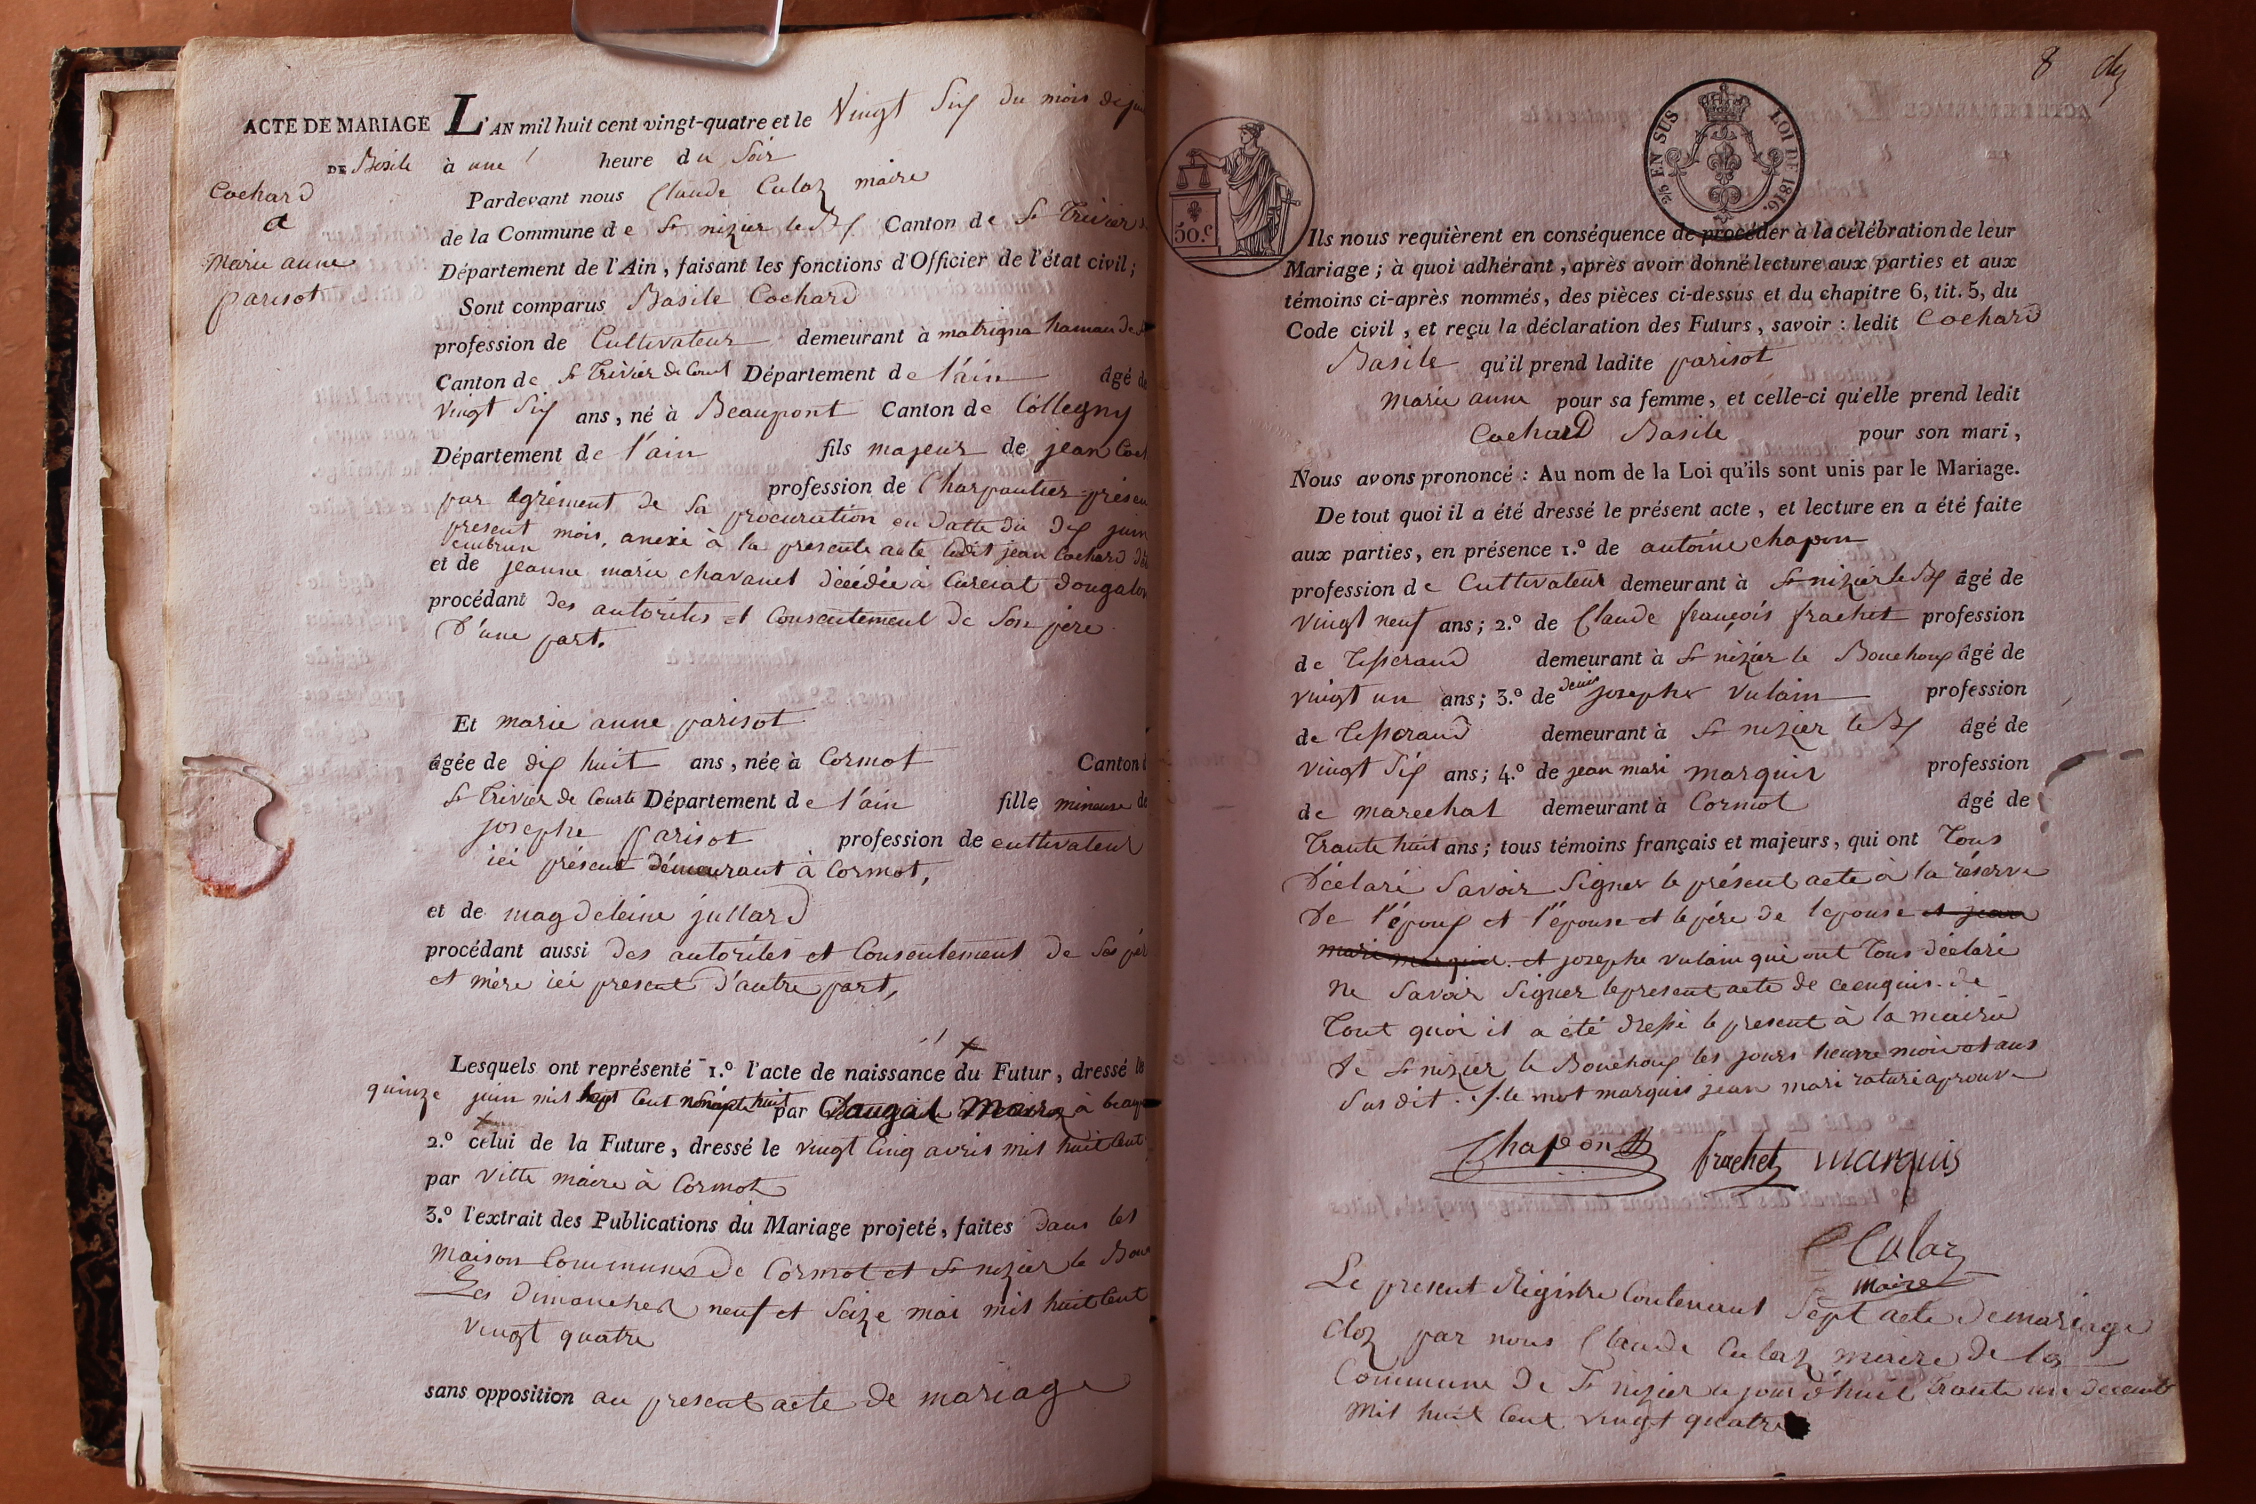 ACTE DE MARIAGE
DE Basile
Cochard
&
Marie anne
parisot
L'AN mil huit cent vingt-quatre et le Vingt Six du mois de
à une heure du Soir
Pardevant nous Claude Culaz maire
de la Commune de St nizier le Canton de St Trivier
Département de l'Ain, faisant les fonctions d'Officier de l'état civil;
Sont comparus Basile Cochard
profession de Cultivateur demeurant à hamau de
Canton de St Trivier de Court Département de l'ain âgé de
vingt Six ans, né à Beaupont Canton de Collegny
Département de l'ain fils majeur de jean
profession de Charpantier
par agrément de Sa procuration en datte du dix juin
present mois, anexé à la presente acte ledit jean Cochard
et de jeanne marie chavanel décédée à Curciat dongalon
procédant des autorités et Consentement de Son père
D'une part.
Et marie anne parisot
âgée de dix huit ans, née à Cormot Canton
St Trivier de Courte Département de l'ain fille mineure de
josephe parisot profession de cultivateur
ici présent démeurant à Cormot,
et de magdeleine jullard
procédant aussi des autorités et Consentement de Ses
et mère ici present d'autre part,
Lesquels ont représenté 1.º l'acte de naissance du Futur, dressé le
quinze juin mil Sept Cent huit par Maire à
2.º celui de la Future, dressé le vingt Cinq avril mil huit Cent
par Vitte maire à Cormot
3.º l'extrait des Publications du Mariage projeté, faites dans les
maison Communes de Cormot et St nizier le
Les dimanches neuf et Seize mai mil huit Cent
vingt quatre
sans opposition au present acte de mariage
8
2/10 EN SUS LOI DE 1816.
50.c
Ils nous requièrent en conséquence de procéder à la célébration de leur
Mariage; à quoi adhérant, après avoir donné lecture aux parties et aux
témoins ci-après nommés, des pièces ci-dessus et du chapitre 6, tit. 5, du
Code civil, et reçu la déclaration des Futurs, savoir: ledit Cochard
Basile qu'il prend ladite parisot
Marie anne pour sa femme, et celle-ci qu'elle prend ledit
Cochard Basile pour son mari,
Nous avons prononcé: Au nom de la Loi qu'ils sont unis par le Mariage.
De tout quoi il a été dressé le présent acte, et lecture en a été faite
aux parties, en présence 1.º de antoine chapon
profession de Cultivateur demeurant à St nizier le âgé de
vingt neuf ans; 2.º de Claude françois frachet profession
de Tisserand demeurant à St nizier le Bouchoux âgé de
vingt un ans; 3.º de denis josephe vulain profession
de Tisserand demeurant à St nizier le âgé de
vingt Six ans; 4.º de jean mari marquis profession
de marechal demeurant à Cormot âgé de
Trante huit ans; tous témoins français et majeurs, qui ont Tous
Déclaré Savoir Signer le présent acte à la réserve
De l'époux et l'épouse et le père de lepouse et jean
mari marquis et josephe vulain qui ont Tous déclaré
ne Savoir Signer le present acte de ce enquis. de
Tout quoi il a été dressé le present à la mairie
de St nizier le Bouchoux les jours heure mois et ans
Sus dit. le mot marquis jean mari raturé aprouvé
Chapon frachet marquis
Culaz
Maire
Le present Registre Contenant Sept acte de mariage
Cloz par nous Claude Culaz maire de la
Commune de St nizier ce jour d'huit Trante un
mil huit Cent vingt quatre